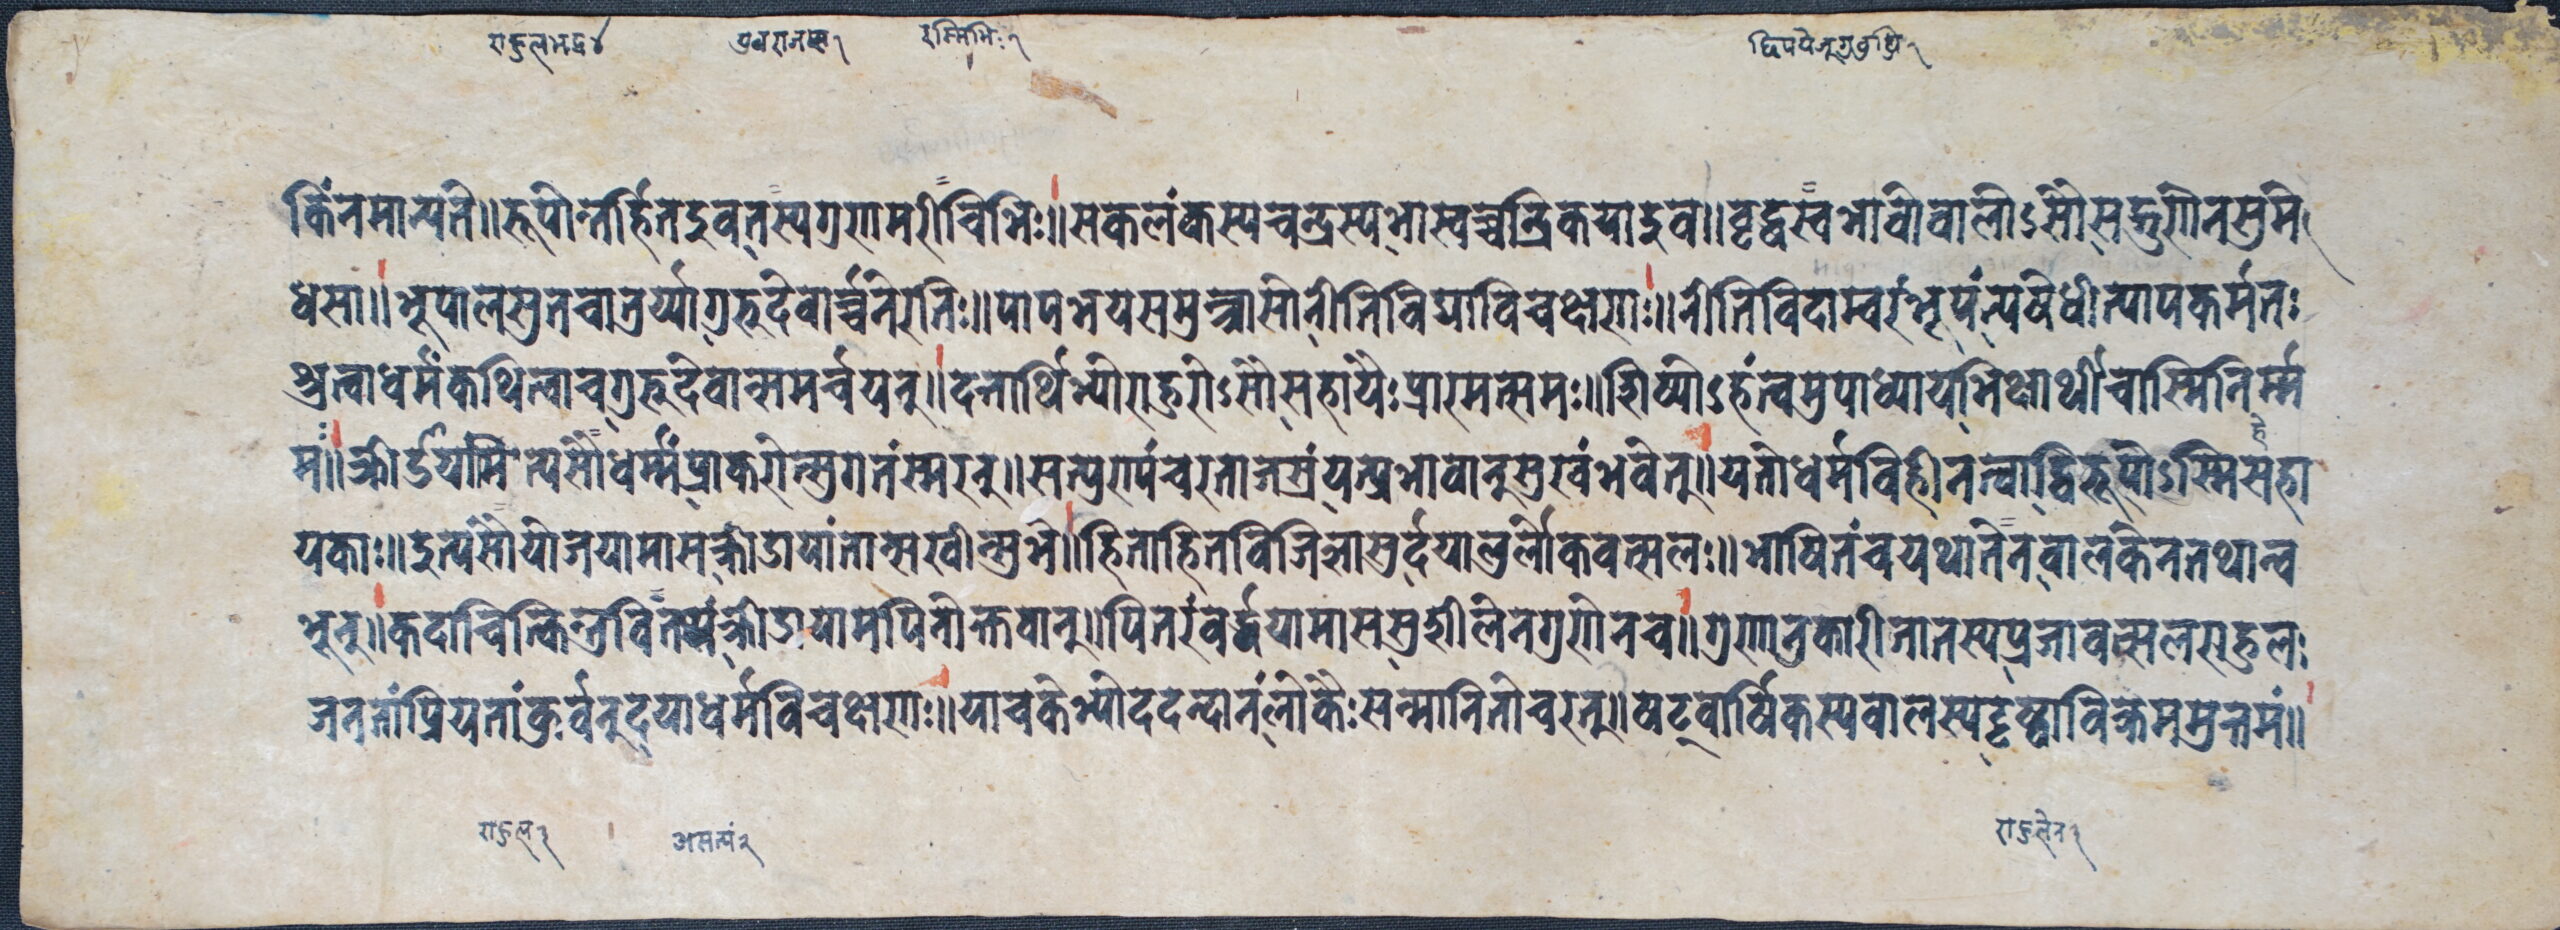 राहुलभद्र४ युवराजस्य१ रस्मिभिः१
किंनमान्यते॥रूपोन्तर्हितइवतस्यगुणमरीचिभिः॥सकलंकस्यचन्द्रस्यभास्वच्चन्द्रिकयाइव॥वृद्धस्वभावोवालोऽसौसद्गुणेनसुमे
धसा॥भूपालसुतचातुर्य्यागुरुदेवार्च्चनेरतिः॥पापभयसमुत्त्रासोनीतिविद्याविचक्षणः॥नीतिविदाम्वरंभूपंन्यषेधीत्पापकर्मतः
श्रुत्वाधर्मंकथित्वाचगुरुदेवान्समर्चयन्॥दत्तार्थिभ्योराहुरोऽसौसहायैःप्रारमत्समः॥शिष्योऽहंत्वमुपाध्यायभिक्षार्थीचास्मिनिर्म्म
मः॥क्रीर्डयमित्यसौधर्म्मंप्राकरोत्सुगतंस्मरन्॥सत्पुराणंचरताजस्रंयत्प्रभावात्सुखंभवेत्॥यतोधर्मविहीनत्वाद्विरूपोऽस्मिसहा
यकाः॥इत्यसौयोजयामासक्रीडायांतान्सखीन्सुभे॥हिताहितविजिज्ञासुर्दयालुर्लोकवत्सलः॥भाषितंचयथातेनवालकेनतथात्व
भूत्॥कदाचित्किन्तुवितथ्यंक्रीडायामपिनोक्तवान्॥पितरंवर्द्धयामाससुशीलेनगुणेनच॥गुणानुकारीजातस्यप्रजावत्सलराहुलः
जनतांप्रियतांकुर्वन्दयाधर्मविचक्षणः॥याचकेभ्योददन्दानंलोकैःसन्मानितोचरत्॥षट्वार्षिकस्यवालस्यदृष्ट्वाविक्रममुत्तमं॥
राहुल२ असत्यं२ राहुलेन२